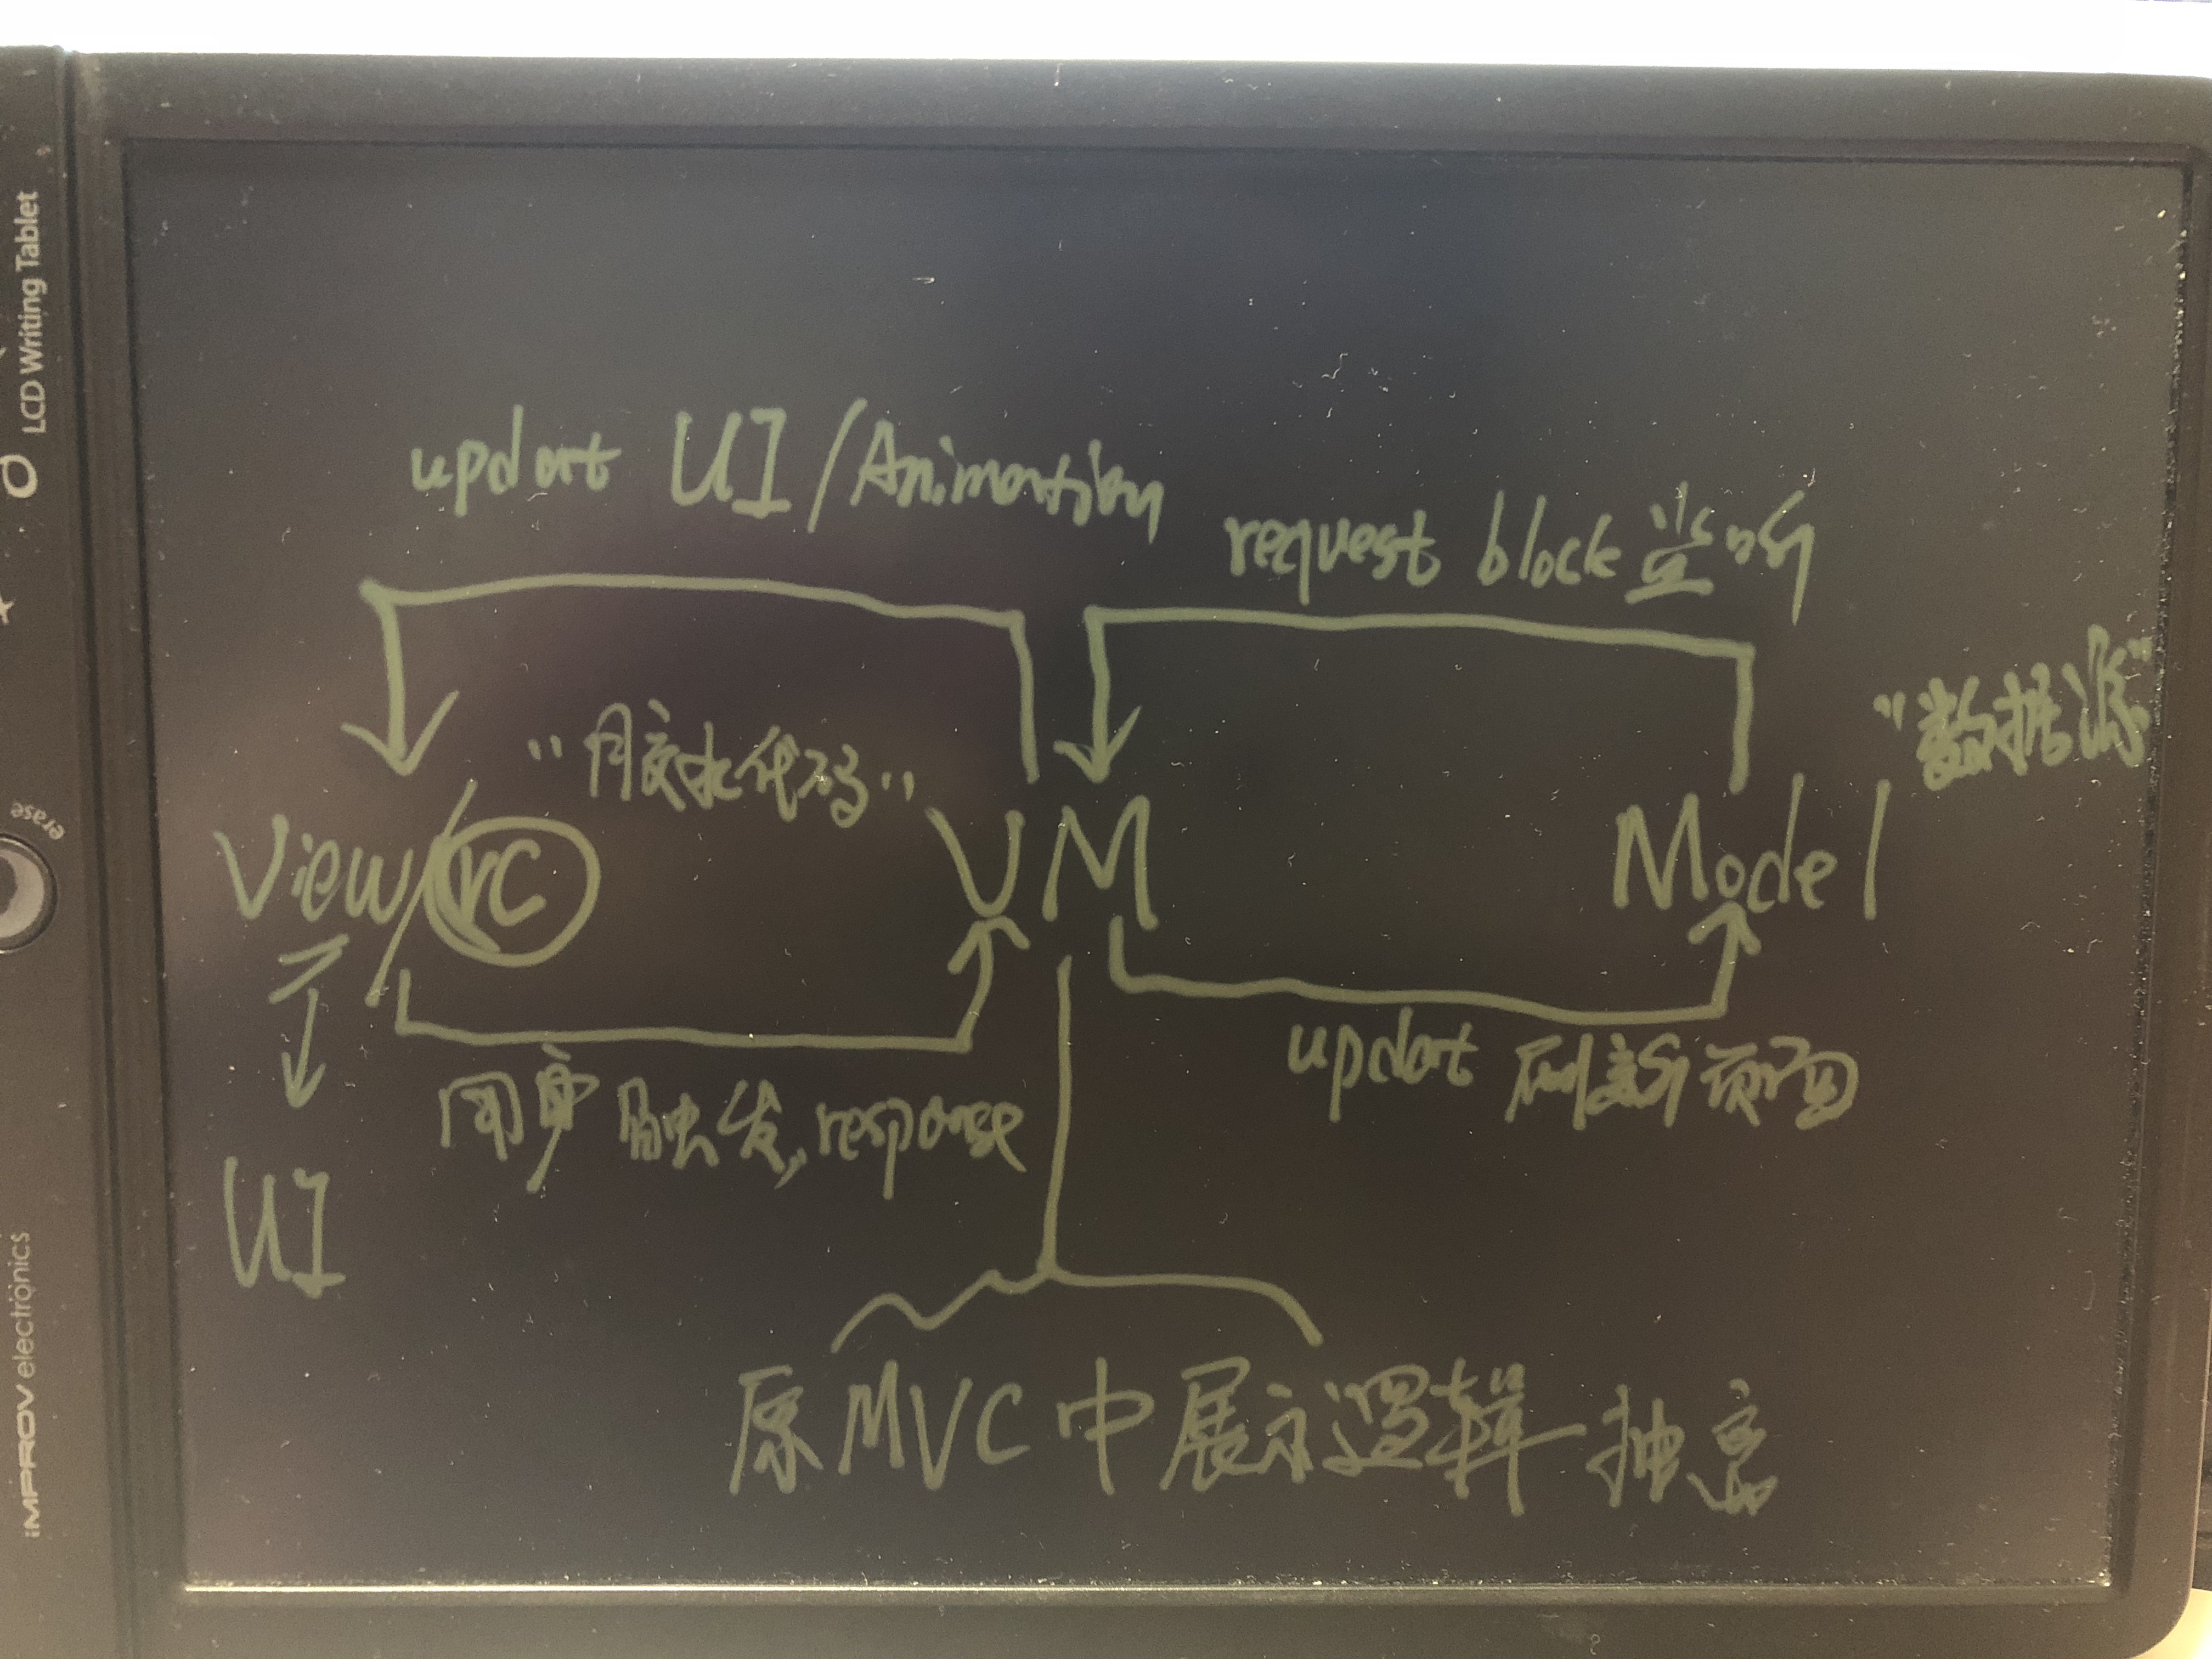 LCD Writing Tablet
erase
iMPROV electronics
updat UI/Animation
request block 监听
"数据源"
"胶水代码"
View/VC
VM
Model
用户触发, response
updat 刷新页面
UI
原MVC中展示逻辑抽离